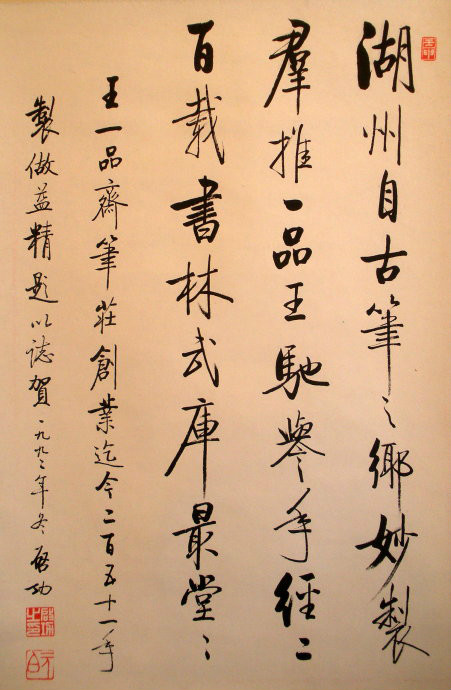 湖州自古筆之鄉妙製
羣推一品王馳譽年經二
百載書林武庫最堂〻
王一品齋筆莊創業迄今二百五十一年
製做益精題以誌賀一九九二年冬啓功
元白